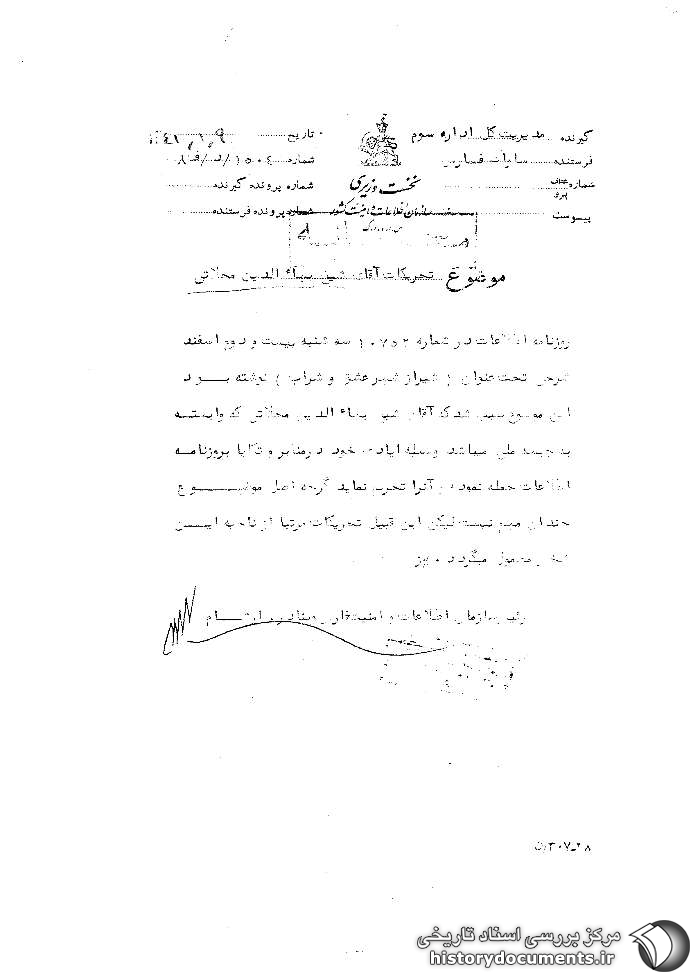 گیرنده مدیریت کل اداره سوم
تاریخ ۴۱/۱/۹
فرستنده ساواک فارس
شماره ۱۵۰۴/
شماره عطف
نخست وزیری
شماره پرونده گیرنده
سازمان اطلاعات و امنیت کشور
شماره پرونده فرستنده
پیوست
موضوع تحریکات آقای شیخ بهاء الدین محلاتی
روزنامه اطلاعات در شماره ۱۰۷۵۲ سه شنبه بیست و دوم اسفند
شرحی تحت عنوان ( شیراز شهر عشق و شراب ) نوشته بود
این موضوع سبب شد که آقای شیخ بهاء الدین محلاتی که وابسته
به جبهه ملی میباشد وسیله ایادی خود در منابر و تکایا بروزنامه
اطلاعات حمله نموده و آنرا تحریم نماید گرچه اصل موضوع
چندان مهم نیست لیکن این قبیل تحریکات مرتبا از ناحیه این
شخص معمول میگردد
رئیس سازمان اطلاعات و امنیت فارس
۲۸-۳۰۷
مرکز بررسی اسناد تاریخی
historydocuments.ir